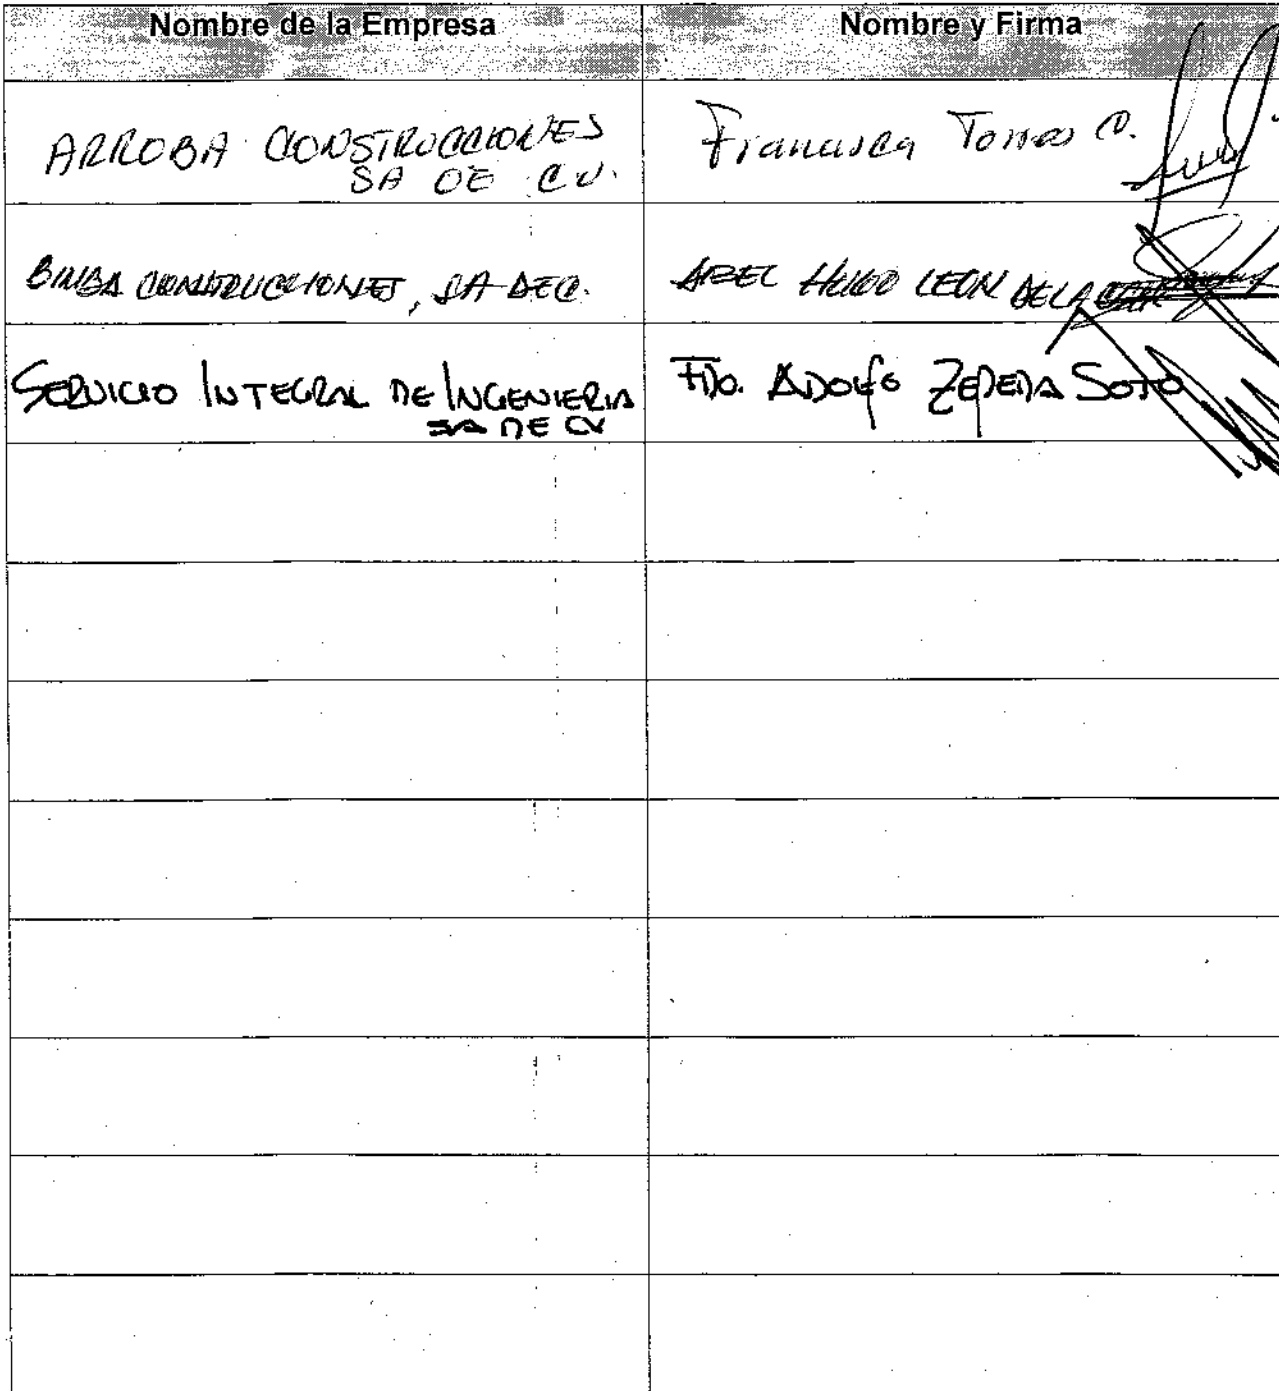 Nombre de la Empresa
Nombre y Firma
ARROBA CONSTRUCCIONES
SA DE C.V.
Francisca Torres C.
BINBA CONSTRUCCIONES, SA DE C.
ABEL HUGO LEON DE LA
SERVICIO INTEGRAL DE INGENIERIA
SA DE CV
FDO. ADOLFO ZEPEDA SOTO